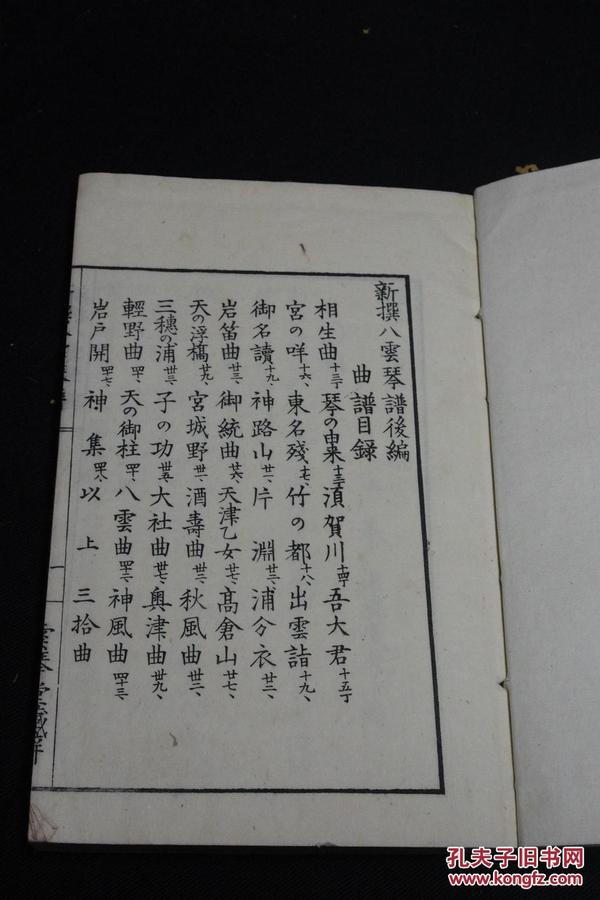 新撰八雲琴譜後編
曲譜目録
相生曲十三丁 琴の由来十三丁 須賀川十四丁 吾大君十五丁
宮の咩十六、 東名殘十七、 竹の都十八、 出雲詣十九、
御名讀十九、 神路山廿一、 片淵廿二、 浦分衣廿二、
岩笛曲廿三、 御統曲廿六、 天津乙女廿七、 高倉山廿七、
天の浮橋廿九、 宮城野卅一、 酒壽曲卅二、 秋風曲卅二、
三穗の浦卅三、 子の功卅五、 大社曲卅七、 奥津曲卅九、
輕野曲四十、 天の御柱四十、 八雲曲四十二、 神風曲四十三、
岩戸開四十七、 神集四十八、 以上三拾曲
一
孔夫子旧书网
www.kongfz.com